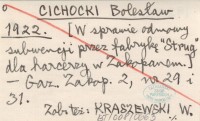 CICHOCKI Bolesław
1922. [W sprawie odmowy
subwencji przez fabrykę "Strug"
dla harcerzy w Zakopanem]
— Gaz. Zakop. 2, nr 29 i
31.
Zob. też: KRASZEWSKI W.